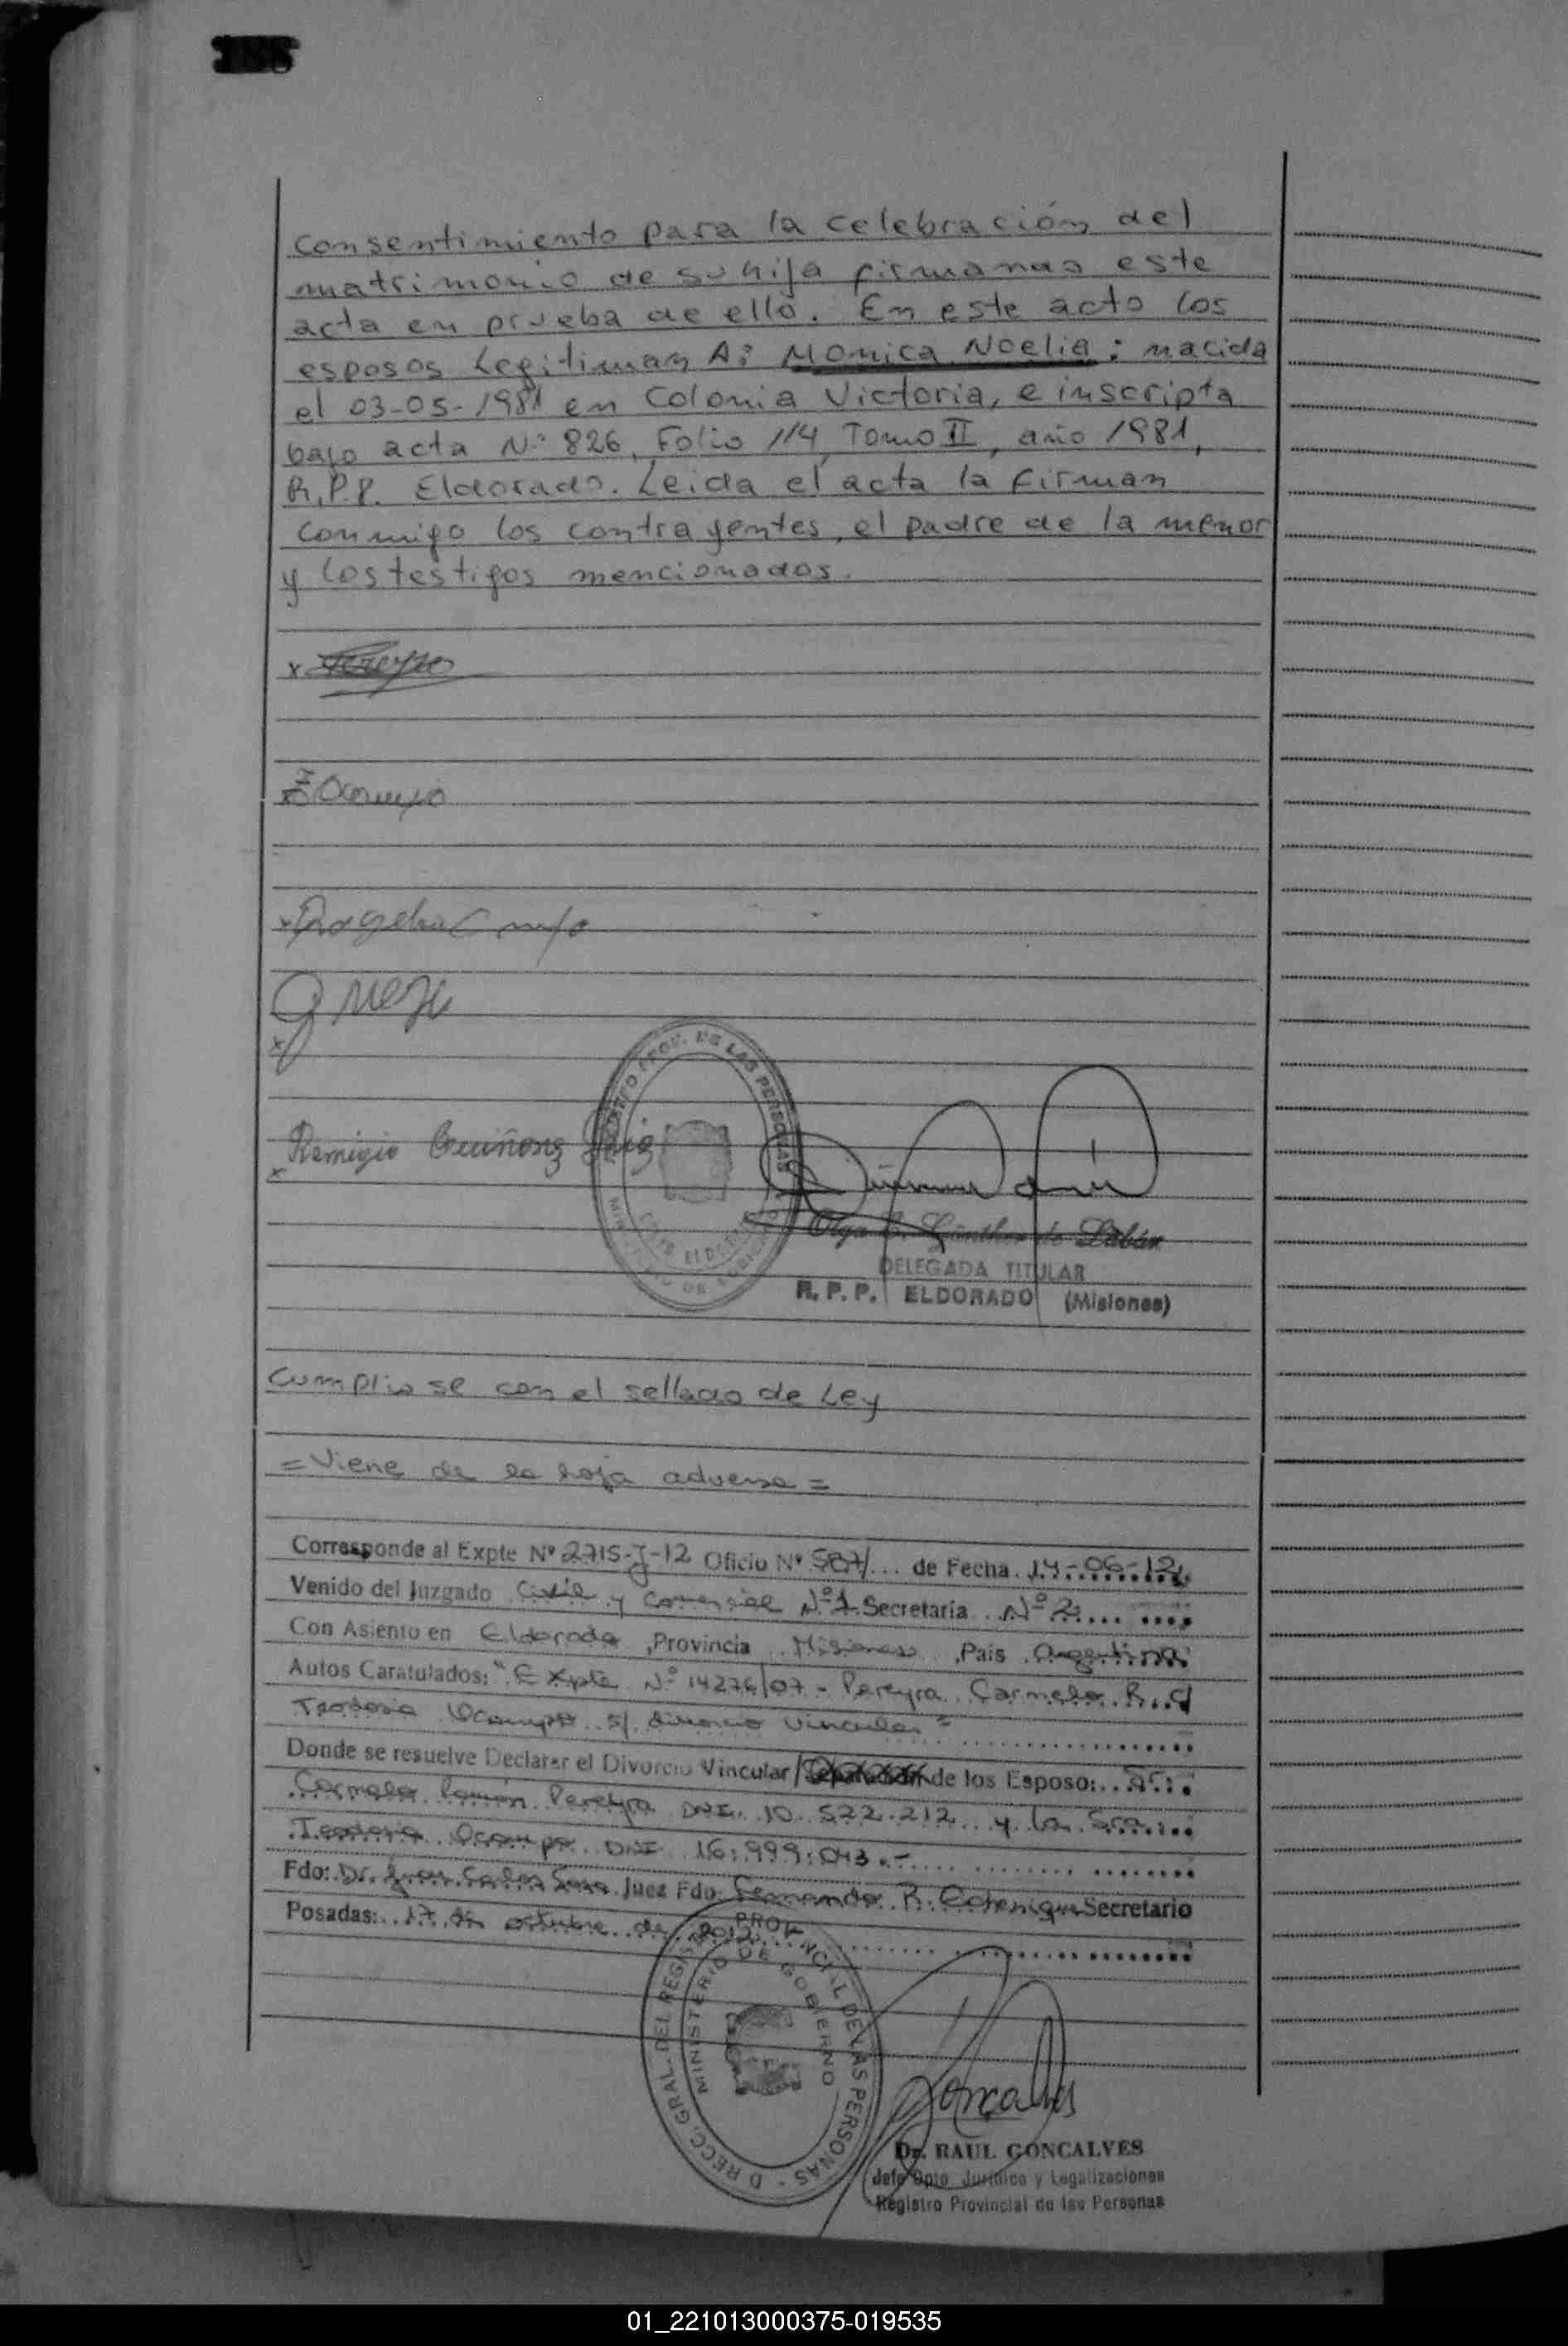 188
consentimiento para la celebración del
matrimonio de su hija firmando este
acta en prueba de ello. En este acto los
esposos Legitiman A: Monica Noelia: nacida
el 03-05-1981 en Colonia Victoria, e inscripta
bajo acta N° 826, Folio 114, Tomo II, año 1981,
R.P.P. Eldorado. Leida el acta la firman
conmigo los contrayentes, el padre de la menor
y los testigos mencionados.
x Pereyra
T Ocampo
x Rogelio
x
Remigio Quiñonez
x
REGISTRO PROV. DE LAS PERSONAS
ELDORADO
Olga E. Günther de
DELEGADA TITULAR
R. P. P. ELDORADO (Misiones)
Cumplio se con el sellado de Ley
= Viene de la hoja adversa =
Corresponde al Expte Nº 2715-J-12 Oficio Nº 587/... de Fecha 14-06-12
Venido del Juzgado Civil y Comercial Nº 1 Secretaría Nº 2
Con Asiento en Eldorado, Provincia Misiones, Pais Argentina
Autos Caratulados: "Expte Nº 14276/07 - Pereyra Carmelo R. c/
Teodosia Ocampo s/ divorcio vincular"
Donde se resuelve Declarar el Divorcio Vincular / Separación de los Esposo: Sr.
Carmelo Ramón Pereyra DNI. 10.522.212 y la Sra.
Teodosia Ocampo DNI 16.999.043.-
Fdo: Dr. Juan Carlos Sosa Juez Fdo. Fernando R. Secretario
Posadas: 17 de octubre de 2012
DIRECC. GRAL. DEL REGISTRO PROVINCIAL DE LAS PERSONAS -
MINISTERIO DE GOBIERNO
Goncalves
Dr. RAUL GONCALVES
Jefe Dpto. Jurídico y Legalizaciones
Registro Provincial de las Personas
01_221013000375-019535